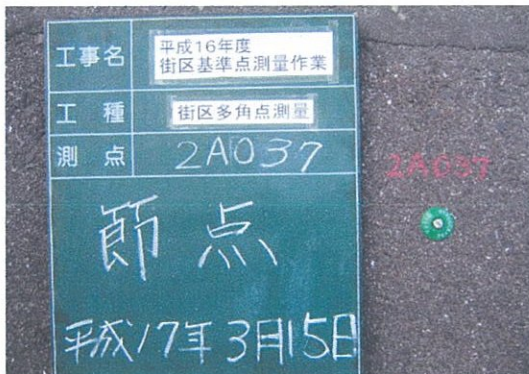 工事名 平成16年度
街区基準点測量作業
工種 街区多角点測量
測点 2A037
節点
平成17年3月15日
2A037